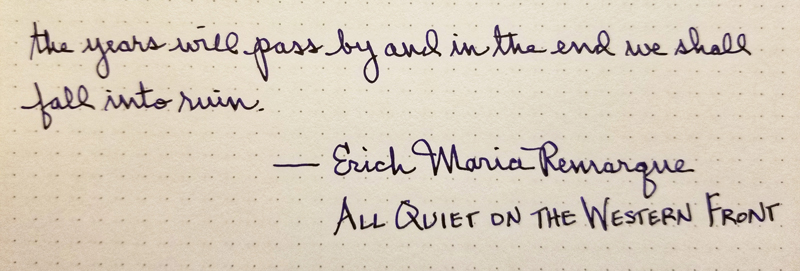 the years will pass by and in the end we shall
fall into ruin.
— Erich Maria Remarque
ALL QUIET ON THE WESTERN FRONT